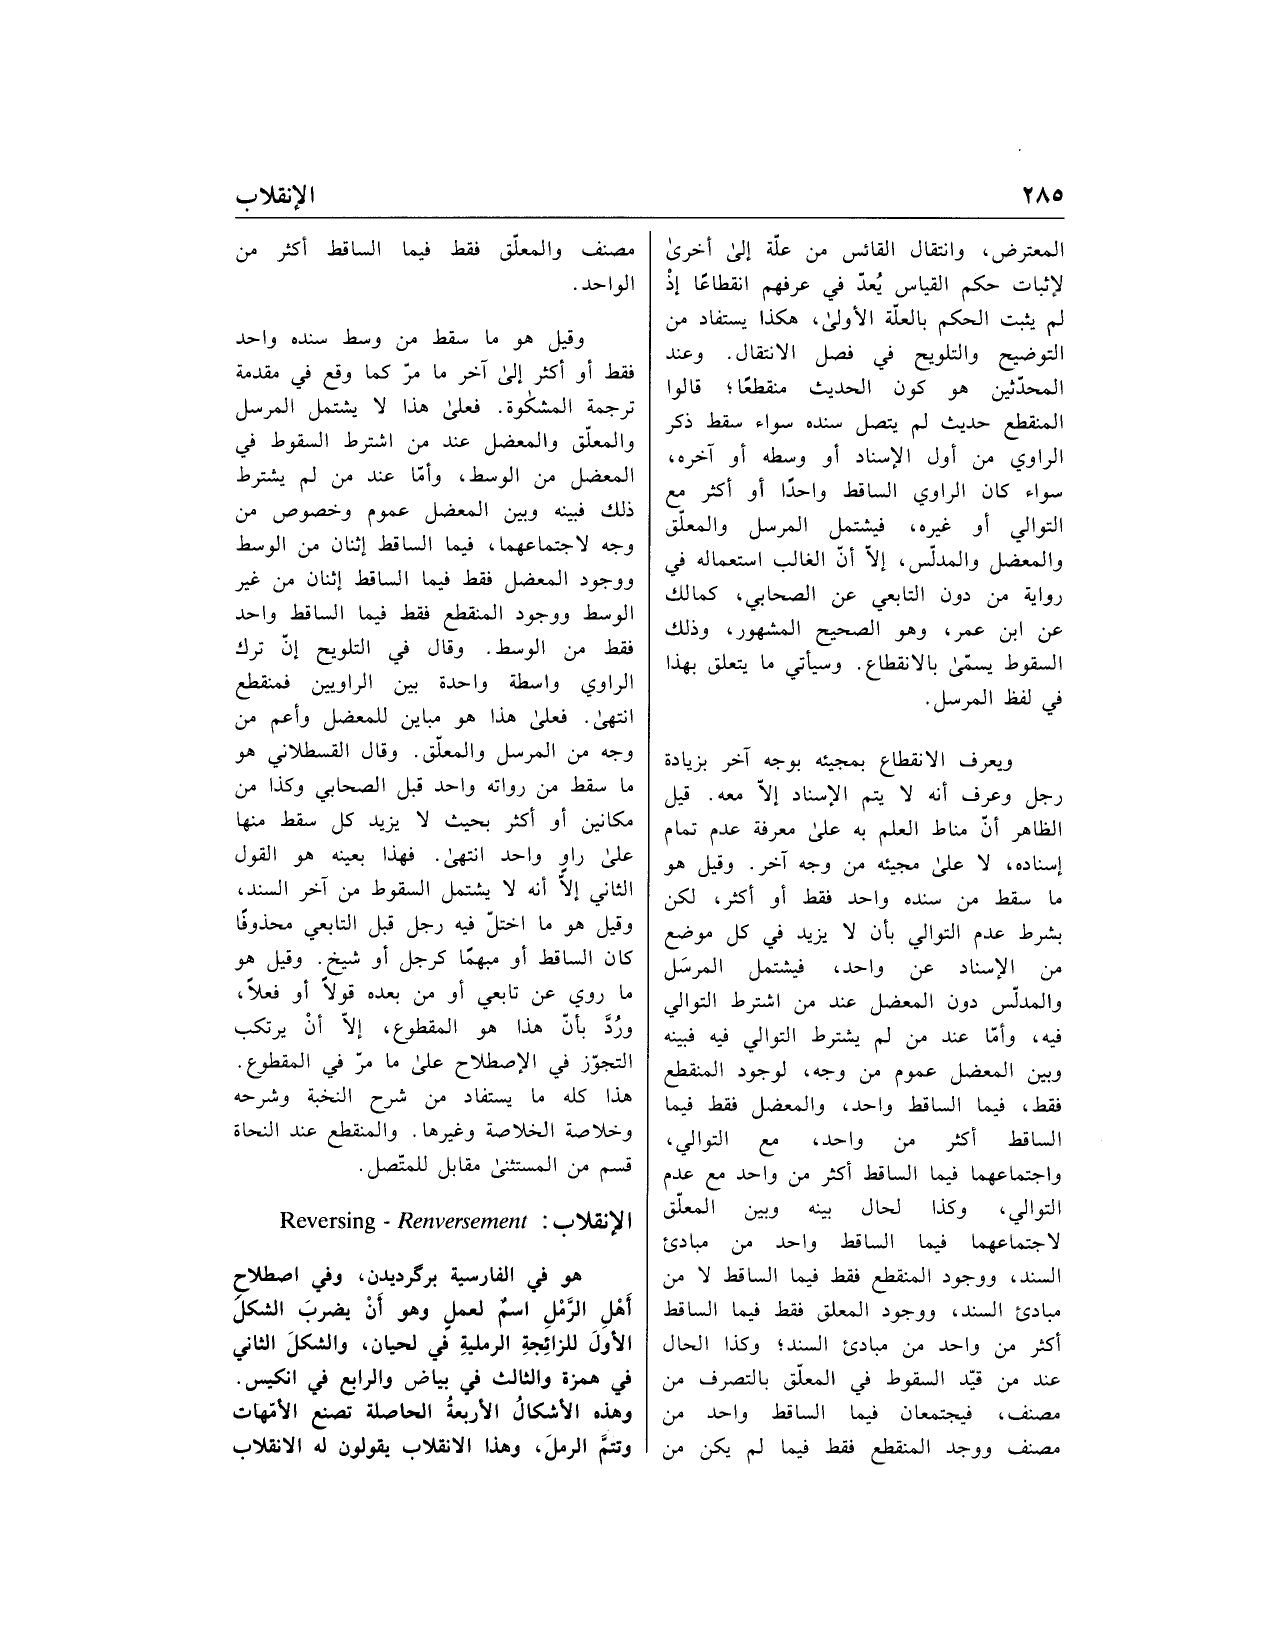 ٢٨٥
الإنقلاب
المعترض، وانتقال القائس من علّة إلىٰ أخرىٰ
لإثبات حكم القياس يُعدّ في عرفهم انقطاعًا إذْ
لم يثبت الحكم بالعلّة الأولىٰ، هكذا يستفاد من
التوضيح والتلويح في فصل الانتقال. وعند
المحدّثين هو كون الحديث منقطعًا؛ قالوا
المنقطع حديث لم يتصل سنده سواء سقط ذكر
الراوي من أول الإسناد أو وسطه أو آخره،
سواء كان الراوي الساقط واحدًا أو أكثر مع
التوالي أو غيره، فيشتمل المرسل والمعلّق
والمعضل والمدلّس، إلاّ أنّ الغالب استعماله في
رواية من دون التابعي عن الصحابي، كمالك
عن ابن عمر، وهو الصحيح المشهور، وذلك
السقوط يسمّىٰ بالانقطاع. وسيأتي ما يتعلق بهذا
في لفظ المرسل.
ويعرف الانقطاع بمجيئه بوجه آخر بزيادة
رجل وعرف أنه لا يتم الإسناد إلاّ معه. قيل
الظاهر أنّ مناط العلم به علىٰ معرفة عدم تمام
إسناده، لا علىٰ مجيئه من وجه آخر. وقيل هو
ما سقط من سنده واحد فقط أو أكثر، لكن
بشرط عدم التوالي بأن لا يزيد في كل موضع
من الإسناد عن واحد، فيشتمل المرسَل
والمدلّس دون المعضل عند من اشترط التوالي
فيه، وأمّا عند من لم يشترط التوالي فيه فبينه
وبين المعضل عموم من وجه، لوجود المنقطع
فقط، فيما الساقط واحد، والمعضل فقط فيما
الساقط أكثر من واحد، مع التوالي،
واجتماعهما فيما الساقط أكثر من واحد مع عدم
التوالي، وكذا لحال بينه وبين المعلّق
لاجتماعهما فيما الساقط واحد من مبادئ
السند، ووجود المنقطع فقط فيما الساقط لا من
مبادئ السند، ووجود المعلق فقط فيما الساقط
أكثر من واحد من مبادئ السند؛ وكذا الحال
عند من قيّد السقوط في المعلّق بالتصرف من
مصنف، فيجتمعان فيما الساقط واحد من
مصنف ووجد المنقطع فقط فيما لم يكن من
مصنف والمعلّق فقط فيما الساقط أكثر من
الواحد.
وقيل هو ما سقط من وسط سنده واحد
فقط أو أكثر إلىٰ آخر ما مرّ كما وقع في مقدمة
ترجمة المشكٰوة. فعلىٰ هذا لا يشتمل المرسل
والمعلّق والمعضل عند من اشترط السقوط في
المعضل من الوسط، وأمّا عند من لم يشترط
ذلك فبينه وبين المعضل عموم وخصوص من
وجه لاجتماعهما، فيما الساقط إثنان من الوسط
ووجود المعضل فقط فيما الساقط إثنان من غير
الوسط ووجود المنقطع فقط فيما الساقط واحد
فقط من الوسط. وقال في التلويح إنّ ترك
الراوي واسطة واحدة بين الراويين فمنقطع
انتهىٰ. فعلىٰ هذا هو مباين للمعضل وأعم من
وجه من المرسل والمعلّق. وقال القسطلاني هو
ما سقط من رواته واحد قبل الصحابي وكذا من
مكانين أو أكثر بحيث لا يزيد كل سقط منها
علىٰ راوٍ واحد انتهىٰ. فهذا بعينه هو القول
الثاني إلاّ أنه لا يشتمل السقوط من آخر السند،
وقيل هو ما اختلّ فيه رجل قبل التابعي محذوفًا
كان الساقط أو مبهمًا كرجل أو شيخ. وقيل هو
ما روي عن تابعي أو من بعده قولاً أو فعلاً،
ورُدَّ بأنّ هذا هو المقطوع، إلاّ أنْ يرتكب
التجوّز في الإصطلاح علىٰ ما مرّ في المقطوع.
هذا كله ما يستفاد من شرح النخبة وشرحه
وخلاصة الخلاصة وغيرها. والمنقطع عند النحاة
قسم من المستثنىٰ مقابل للمتّصل.
الإنقلاب: Reversing - Renversement
هو في الفارسية برگرديدن، وفي اصطلاحِ
أَهْلِ الرَّمْلِ اسمٌ لعملٍ وهو أَنْ يضربَ الشكلَ
الأولَ للزائِجةِ الرمليةِ في لحيان، والشكلَ الثاني
في همزة والثالث في بياض والرابع في انكيس.
وهذه الأشكالُ الأربعةُ الحاصلة تصنع الأمّهات
وتتمَّ الرملَ، وهذا الانقلاب يقولون له الانقلاب